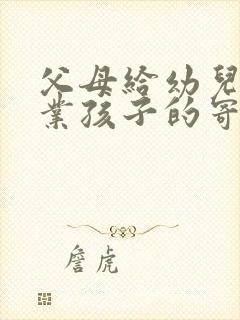 父母給幼兒
業孩子的寄
詹虎